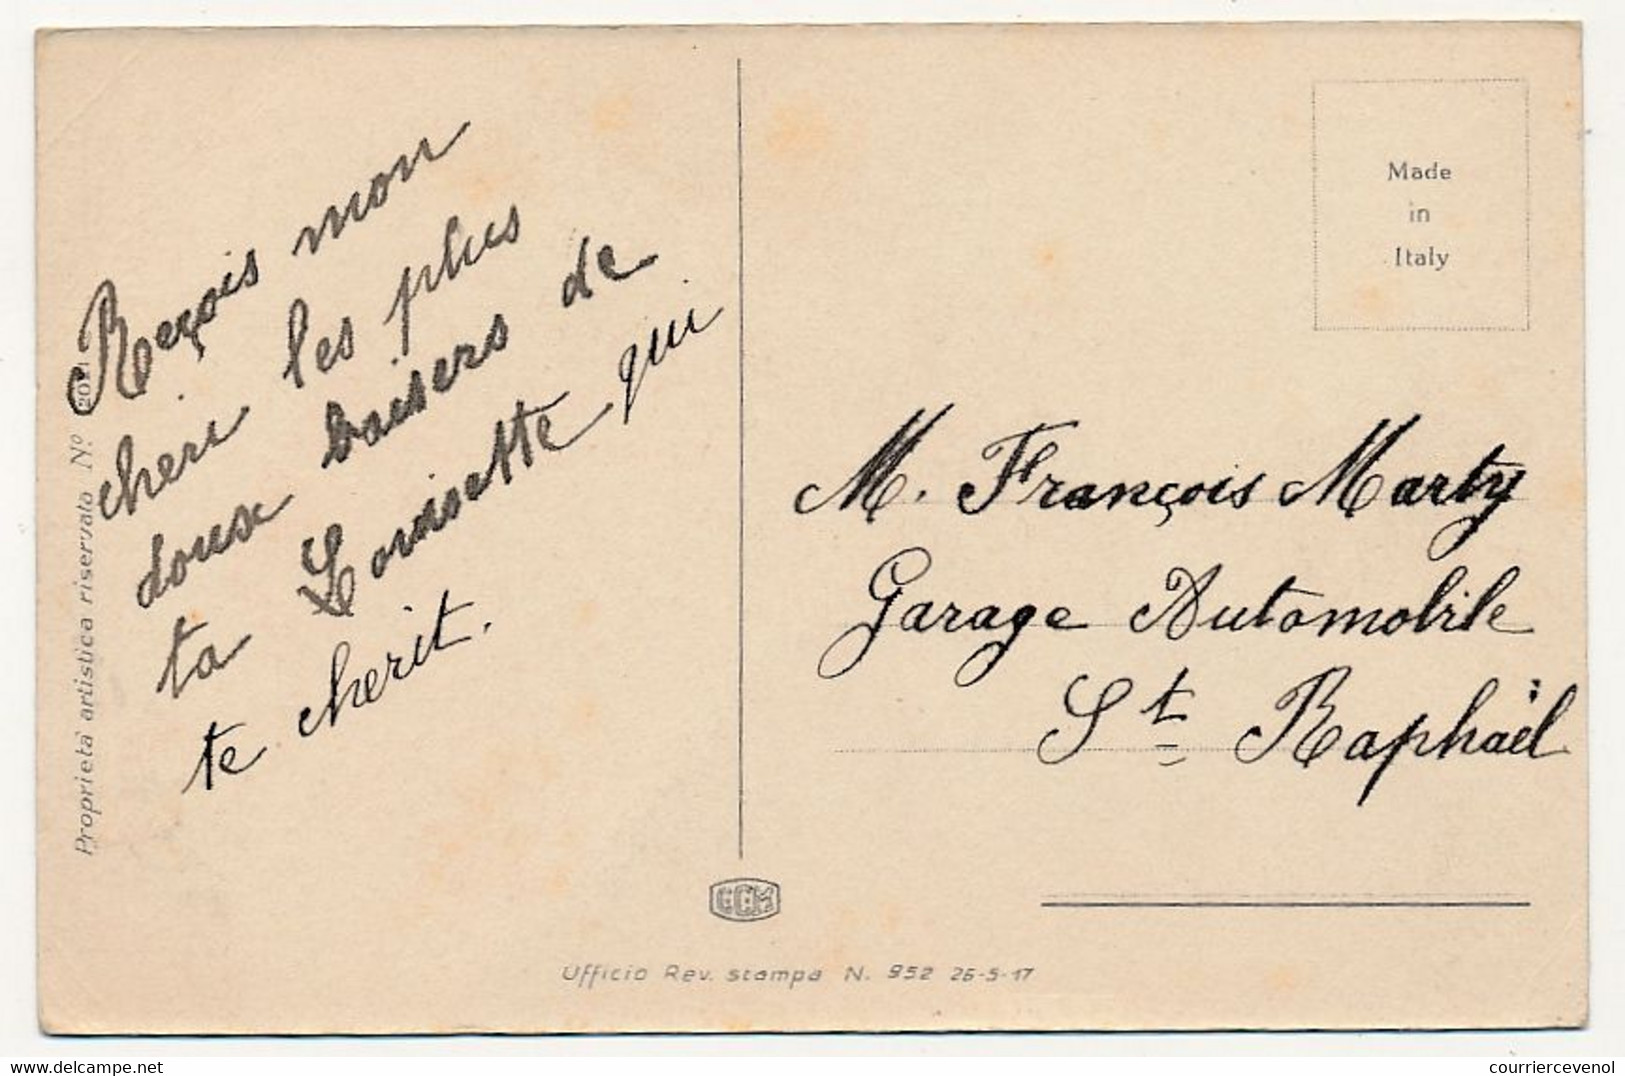 Reçois mon
cheri les plus
doux baisers de
ta Louisette qui
te cherit.
Proprietà artistica riservata Nº
Made
in
Italy
M. François Marty
Garage Automobile
St Raphaël
CCM
Ufficio Rev. stampa N. 952 26-5-17
courriercevenol